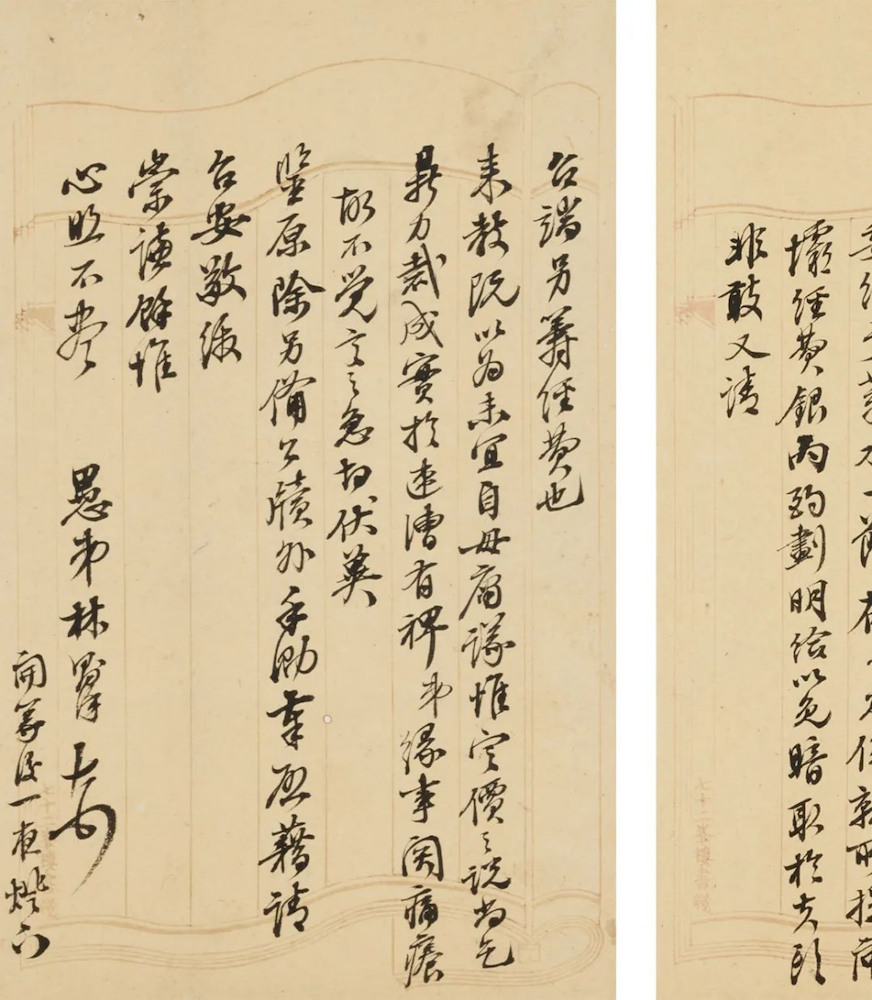 壩經費銀兩酌劃明給以免暗取於
非敢又請
台端另籌經費也
来教既以為未宜自毋庸議惟定價之說尚乞
鼎力裁成實於速漕有裨弟緣事関痛癢
故不覺言之急切伏冀
鑒原除另備公牘外手泐奉啟藉請
台安敬繳
崇謙餘惟
心照不盡
愚弟林 頓首
一夜燈下